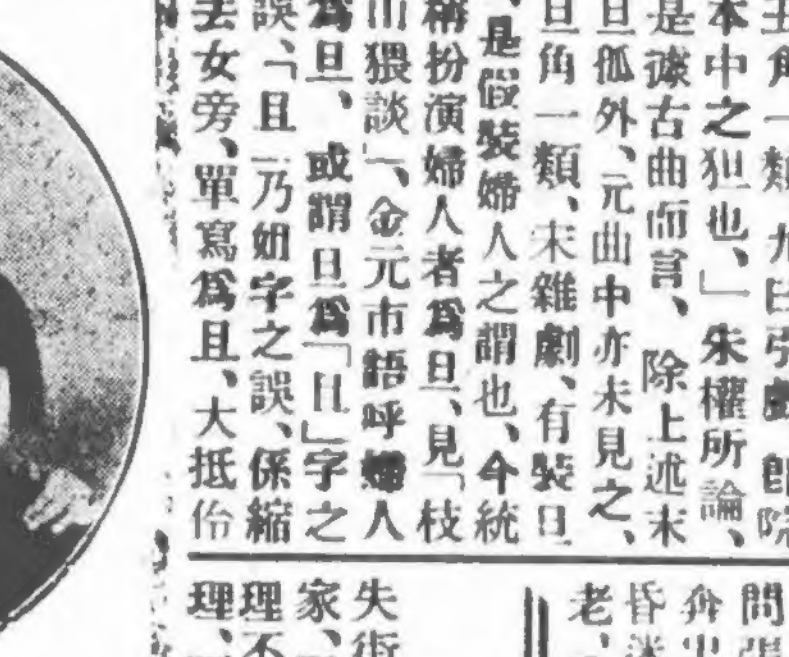 生角一類、九曰引戲、卽院
本中之狚也、」朱權所論、
是據古曲而言、除上述末
旦孤外、元曲中亦未見之、
旦角一類、宋雜劇、有裝旦
、是假裝婦人之謂也、今統
稱扮演婦人者爲旦、見「枝
山猥談」、金元市語呼婦人
爲旦、或謂旦爲「且」字之
誤、「且」乃姐字之誤、係縮
去女旁、單寫爲且、大抵伶
問張
奔出
昏迷
老、
失街
家、
理不
理、